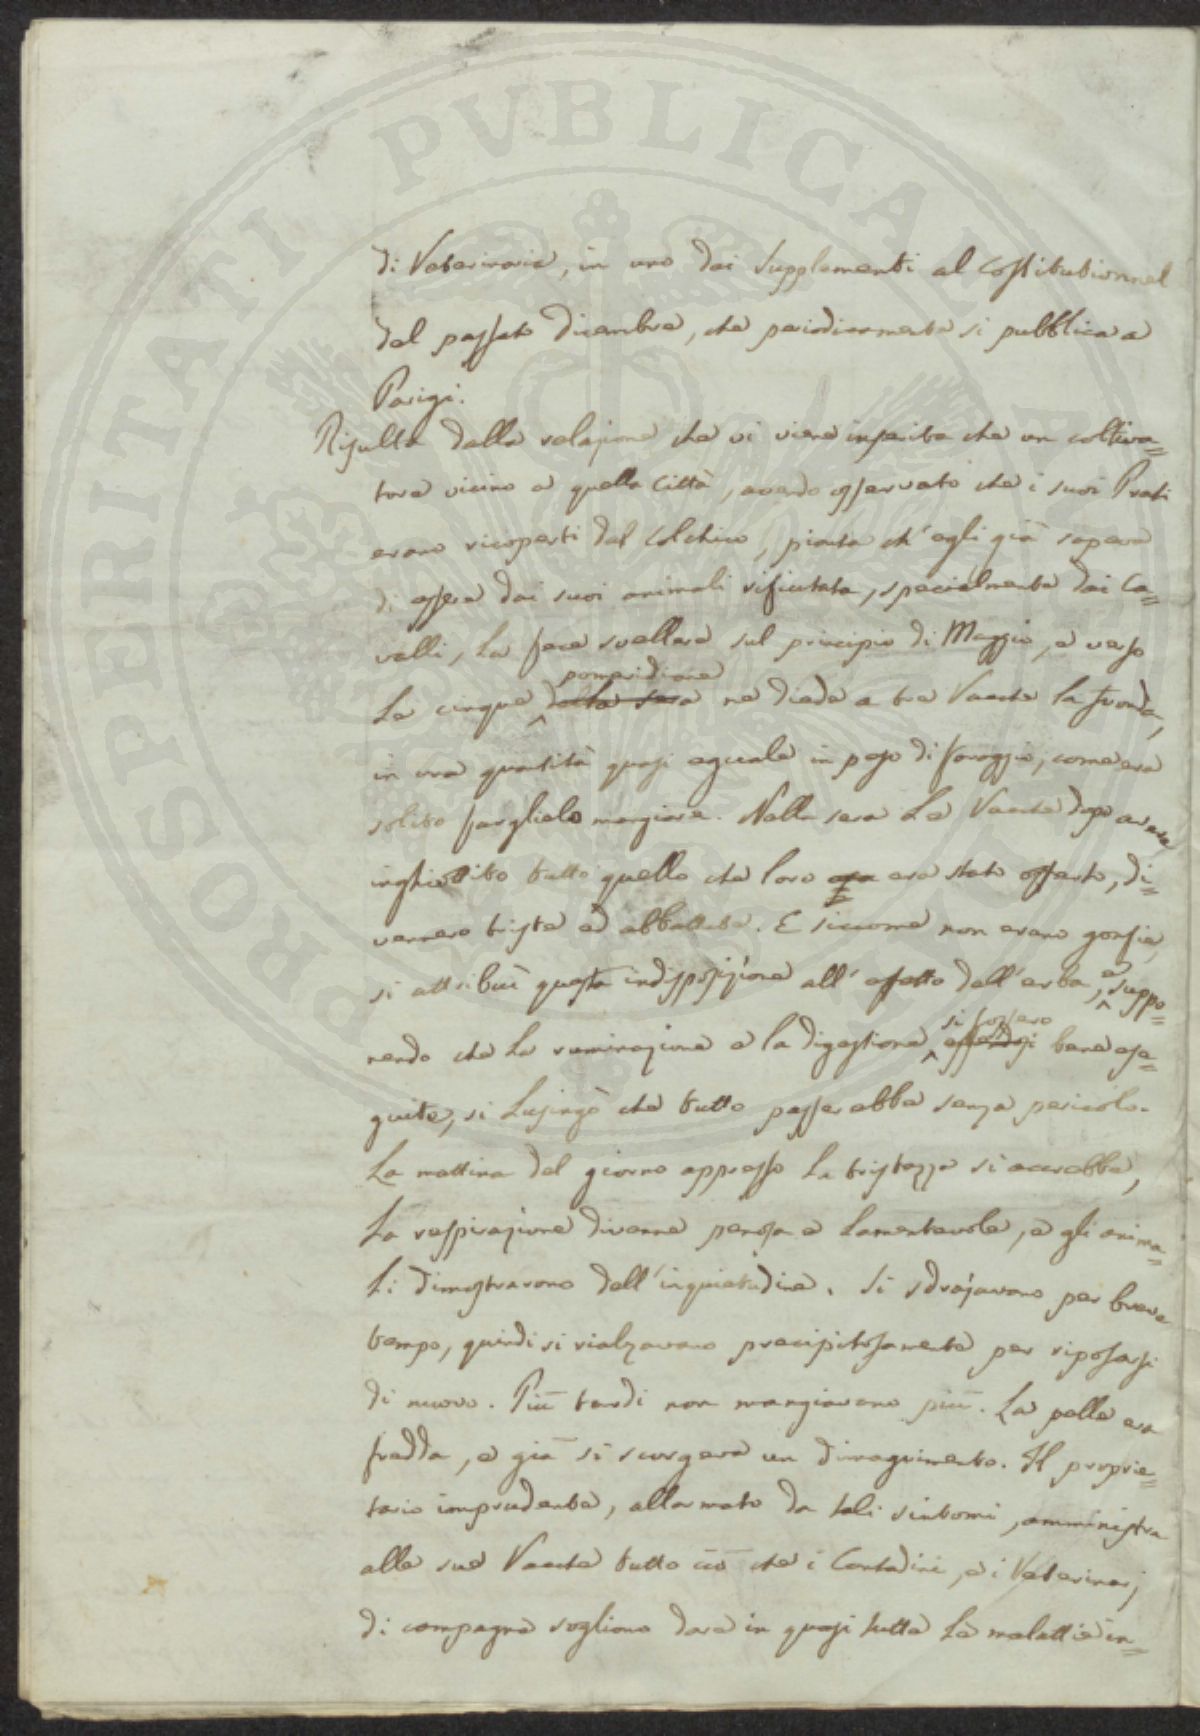 di Veterinaria, in uno dei Supplementi al Costitutionnel
del passato Dicembre, che periodicamente si pubblica a
Parigi.
Risulta dalla relazione che vi viene inserita che un coltiva=
tore vicino a quella Città, avendo osservato che i suoi Prati
erano ricoperti del Colchico, pianta ch'egli già sapeva
di essere dai suoi animali rifiutata, specialmente dai Ca=
valli, La fece svellere sul principio di Maggio, e verso
pomeridiane
Le cinque della sera ne diede a tre Vacche la fronda,
in una quantità quasi eguale in peso di foraggio, come era
solito farglielo mangiare. Nella sera Le Vacche dopo avere
inghiottito tutto quello che loro era stato offerto, di=
vennero triste ed abbattute. E siccome non erano gonfie,
si attribuì questa indisposizione all'effetto dell'erba, e suppo=
si fossero
nendo che La ruminazione e la digestione essendosi bene ese=
guite, si Lusingò che tutto passerebbe senza pericolo.
La mattina del giorno appresso La tristezza si accrebbe,
La respirazione divenne penosa e Lamentevole, e gli anima=
Li dimostravono dell'inquietudine. Si sdrajavano per breve
tempo, quindi si rialzavano precipitosamente per riposarsi
di nuovo. Più tardi non mangiavano più. La pelle era
fredda, e già si scorgeva un dimagrimento. Il proprie=
tario imprudente, allarmato da tali sintomi, amministra
alle sue Vacche tutto ciò che i Contadini, e i Veterinarj
di campagna sogliono dare in quasi tutte Le malattie in=
PROSPERITATI PVBLICAE AV